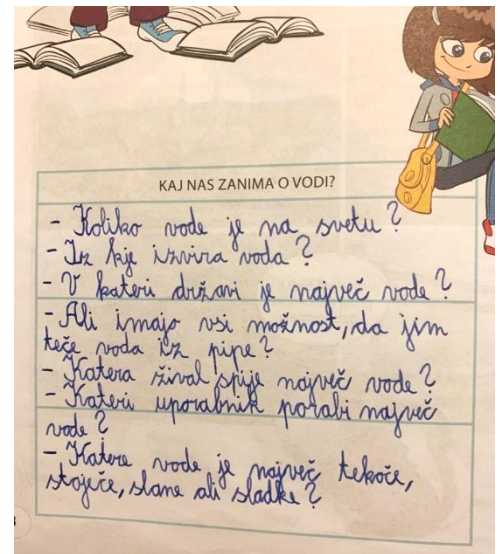 KAJ NAS ZANIMA O VODI?
- Koliko vode je na svetu?
- Iz kje izvira voda?
- V kateri državi je največ vode?
- Ali imajo vsi možnost, da jim
teče voda iz pipe?
- Katera žival spije največ vode?
- Kateri uporabnik porabi največ
vode?
- Katere vode je največ tekoče,
stoječe, slane ali sladke?